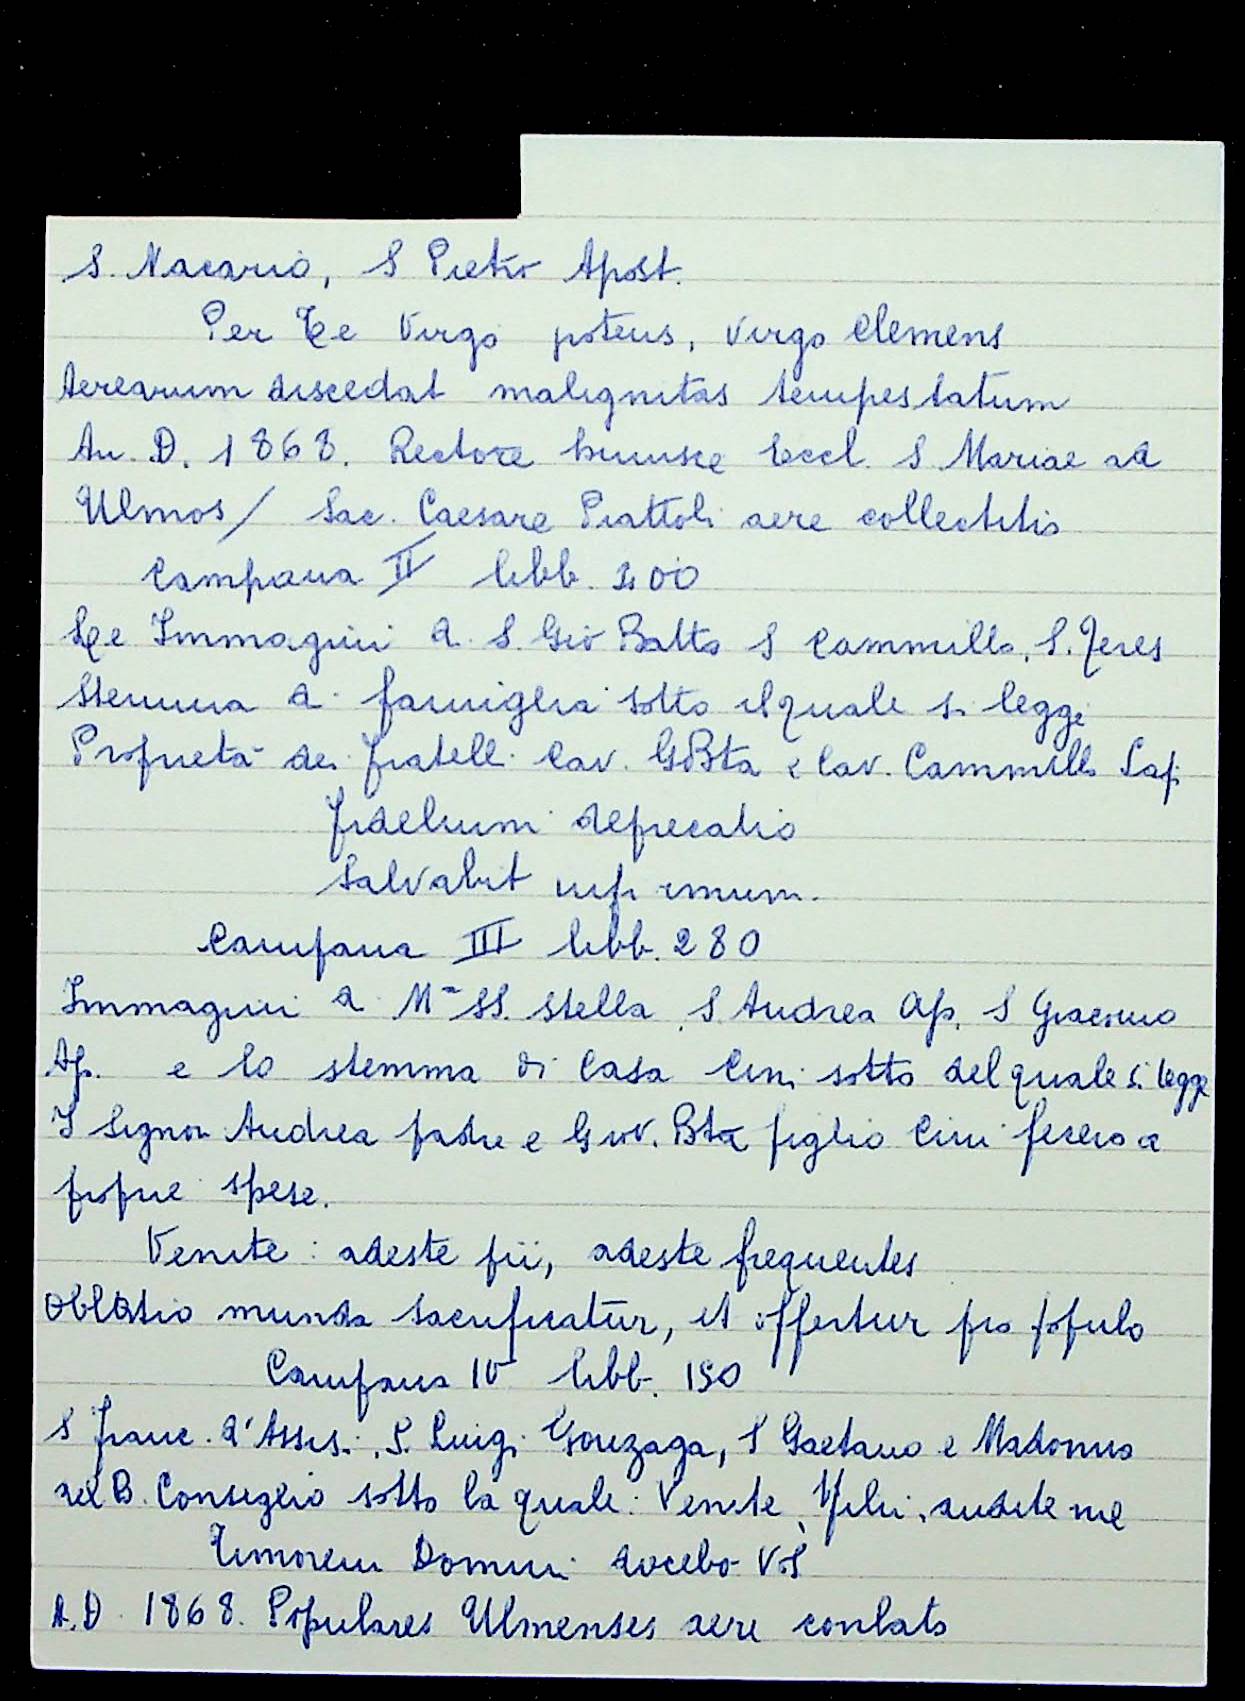 S. Nacario, S Pietro Apost.
Per Te Virgo potens, Virgo Clemens
Aerearum discedat malignitas tempestatum
An. D. 1868. Rectore huiusce Eccl. S. Mariae ad
Ulmos/ Sac. Caesare Piattoli aere collectitio
Campana II libb. 400
Le Immagini di S. Gio Batta S Cammillo, S. Teres
Stemma di famiglia sotto il quale si legge
Proprietà dei fratelli Cav. GBta e Cav. Cammillo Lapi
fidelium deprecatio
Salvabit infirmum.
Campana III libb. 280
Immagini di Mª SS. Stella, S. Andrea Ap, S Giacomo
Ap. e lo stemma di Casa Cini sotto del quale si legge
I Signori Andrea padre e Giov. Bta figlio Cini fecero a
proprie spese.
Venite: adeste pii, adeste frequentes
Oblatio munda sacrificatur, et offertur pro populo
Campana IV libb. 150
S Franc. d'Assisi, S. Luigi Gonzaga, S Gaetano e Madonna
del B. Consiglio sotto la quale: Venite, filii, audite me
Timorem Domini docebo vos
A.D. 1868. Populares Ulmenses aere conlato